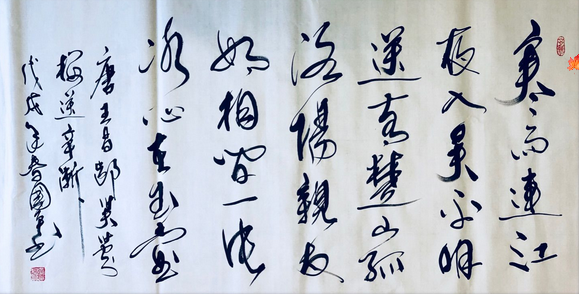 寒雨連江
夜入吴平明
送客楚山孤
洛陽親友
如相問一片
冰心在玉壶
唐王昌龄芙蓉
楼送辛渐
戊戌年春國书